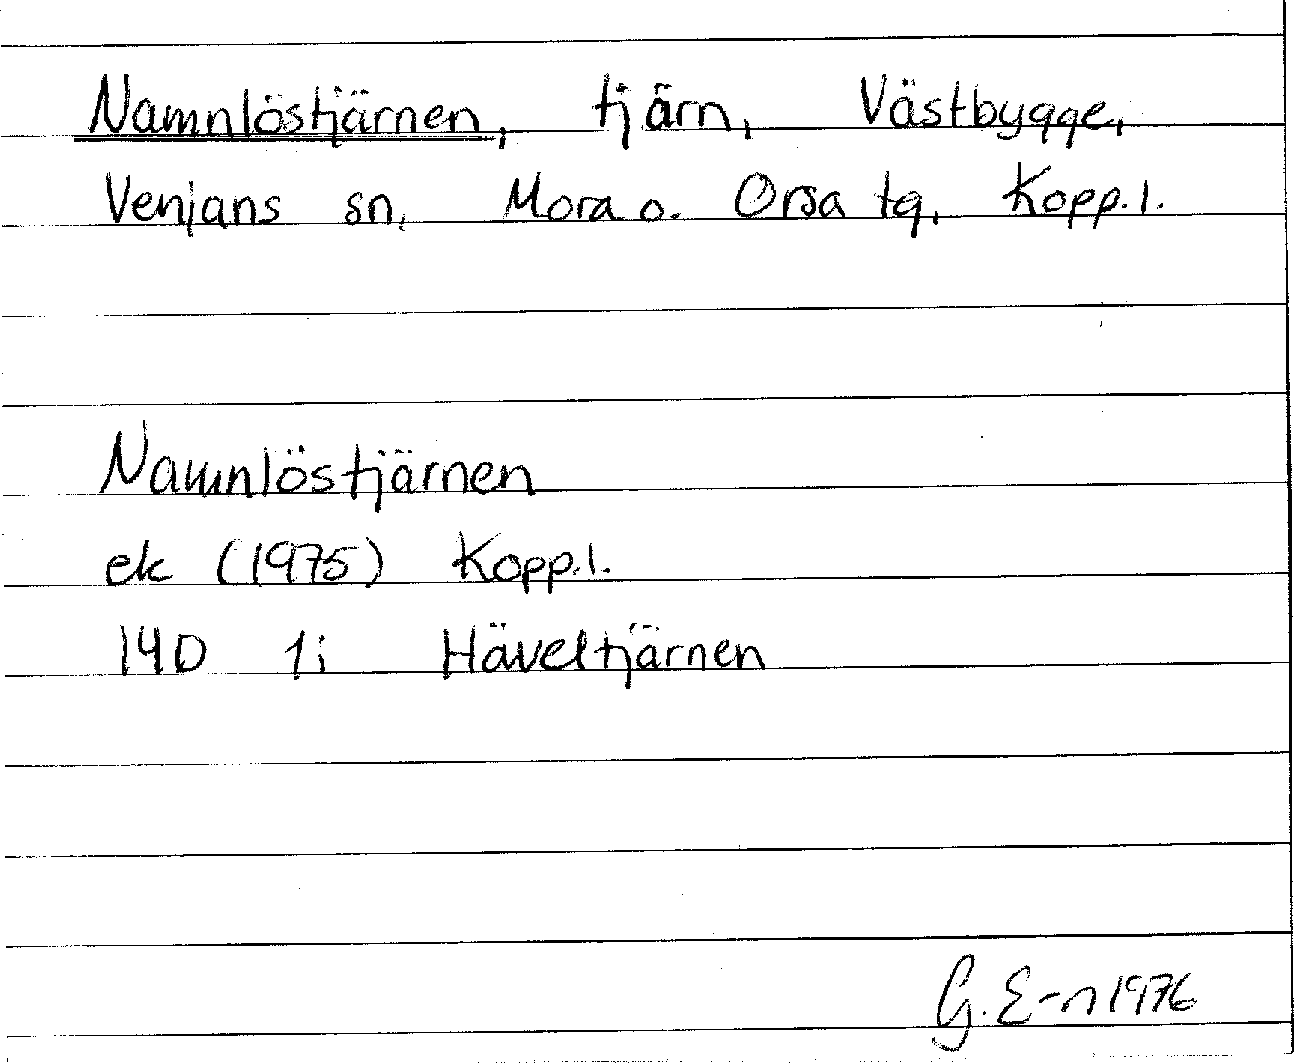 Namnlöstjärnen, tjärn, Västbygge,
Venjans sn, Mora o. Orsa tg, Kopp. l.
Namnlöstjärnen
ek (1975) Kopp. l.
14D 1i Häveltjärnen
G. E-n 1976